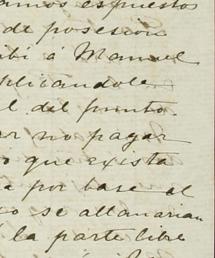 amos espuestos
de posesion
ibi á Manuel
plicandole
l del punto.
ar no pagar
o que exista
a por base el
o se allanarian
la parte libre